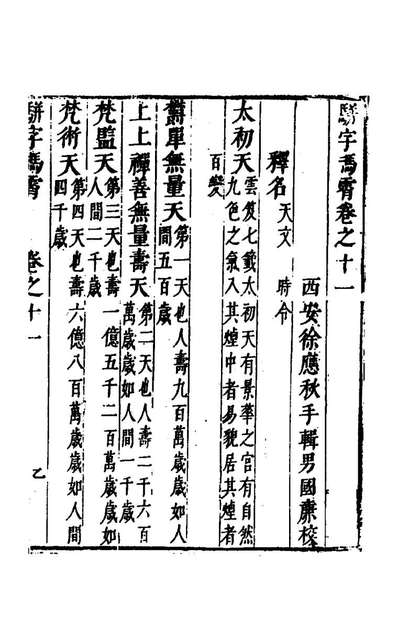 駢字馮霄卷之十一
西安徐應秋手輯男國㢘校
釋名 天文 時令
太初天 雲笈七籤太初天有景華之宮有自然
九色之氣入其煙中者易貌居其煙者
百變
欝單無量天 第一天也人壽九百萬歲歲如人
間五百歲
上上禪善無量壽天 第二天也人壽二千六百
萬歲歲如人間一千歲
梵監天 第三天也壽一億五千二百萬歲歲如
人間二千歲
梵術天 第四天也壽六億八百萬歲歲如人間
四千歲
駢字馮霄 卷之十一 乙